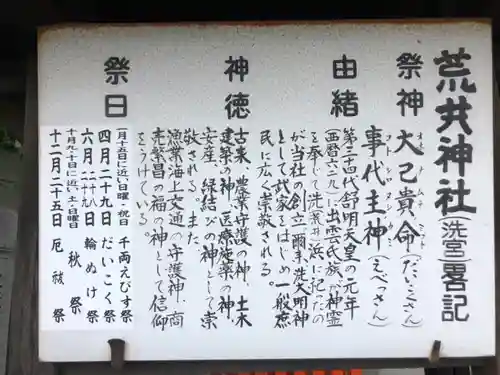 荒井神社(洗宮)畧記
祭神 大己貴命(だいこくさん)
オオナムチノミコト
事代主神(えべっさん)
コトシロヌシノカミ
由緒
第三十四代舒明天皇の元年
西暦六二九に出雲民族が神霊
を奉じて洗荒井浜に祀ったの
が当社の創立 爾来洗大明神
として武家をはじめ一般庶
民に広く崇敬される。
神徳
古来、農業守護の神、土木
建築の神、医療施薬の神、
安産、縁結びの神として崇
敬される。また、
漁業海上交通の守護神、商
売繁昌の福の神として信仰
をうけている。
祭日
一月十五日に近い日曜・祝日 千両えびす祭
四月二十九日 だいこく祭
六月二十八日二十九日 輪ぬけ祭
十月九・十日に近い土・日曜日 秋祭
十二月二十五日 厄祓祭